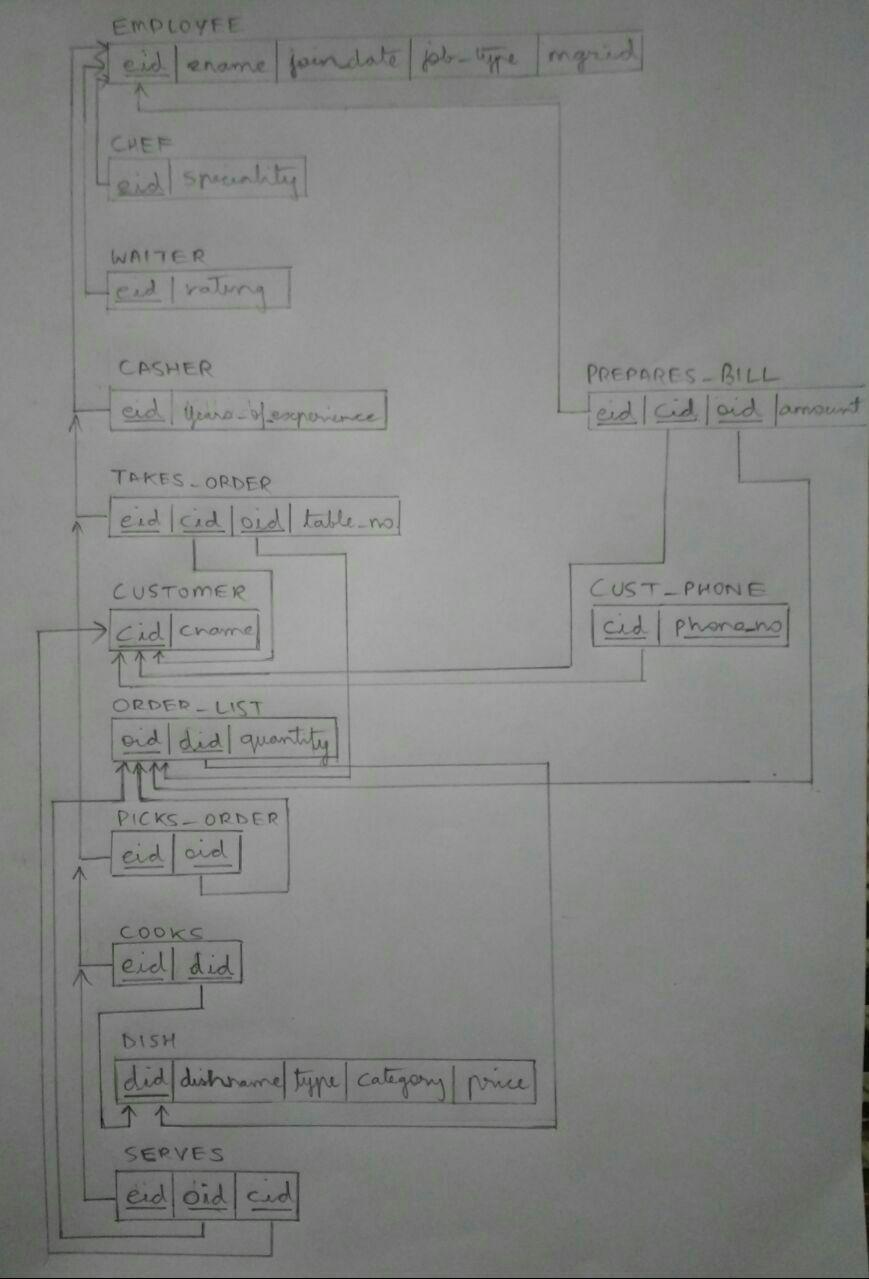 EMPLOYEE
eid ename joindate job_type mgrid
CHEF
eid speciality
WAITER
eid rating
CASHER
eid years_of_experience
PREPARES_BILL
eid cid oid amount
TAKES_ORDER
eid cid oid table_no
CUSTOMER
cid cname
CUST_PHONE
cid phone_no
ORDER_LIST
oid did quantity
PICKS_ORDER
eid oid
COOKS
eid did
DISH
did dishname type category price
SERVES
eid oid cid